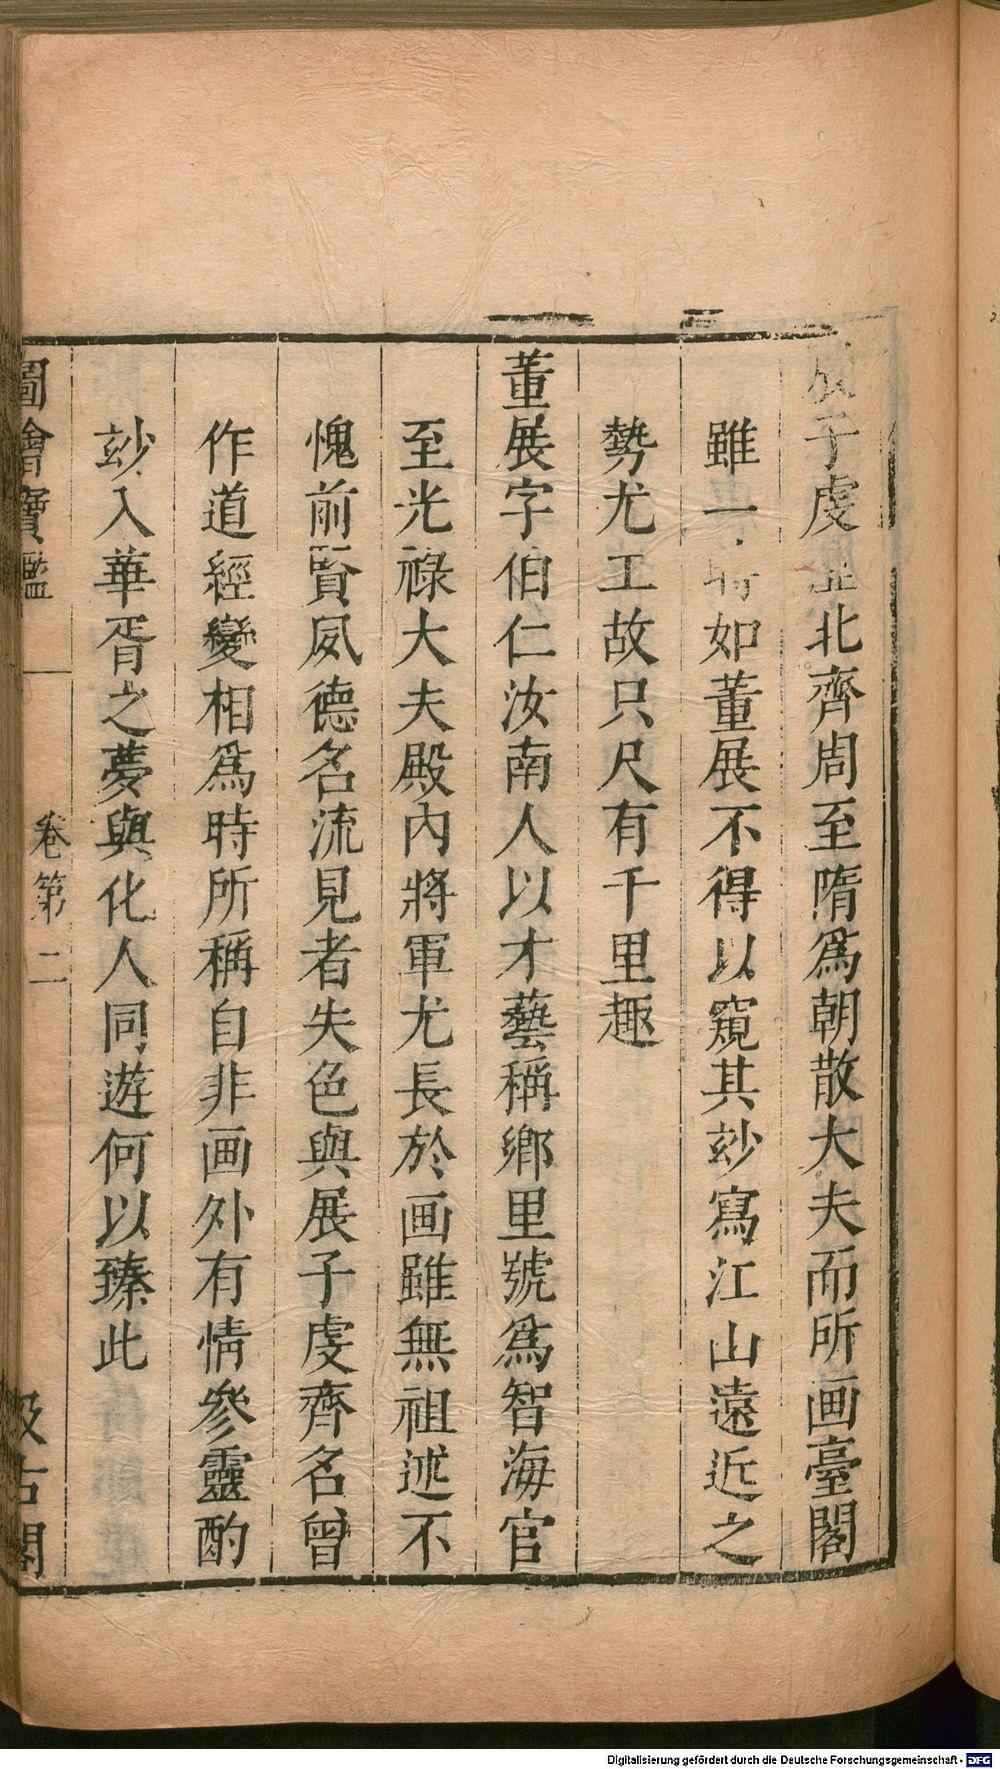 展子虔歷北齊周至隋爲朝散大夫而所画臺閣
雖一時如董展不得以窺其玅寫江山遠近之
勢尤工故只尺有千里趣
董展字伯仁汝南人以才藝稱鄉里號爲智海官
至光祿大夫殿內將軍尤長於画雖無祖述不
愧前賢風德名流見者失色與展子虔齊名曾
作道經變相爲時所稱自非画外有情參靈酌
玅入華胥之夢與化人同遊何以臻此
圖繪寶鑑 卷第二 汲古閣
Digitalisierung gefördert durch die Deutsche Forschungsgemeinschaft - DFG